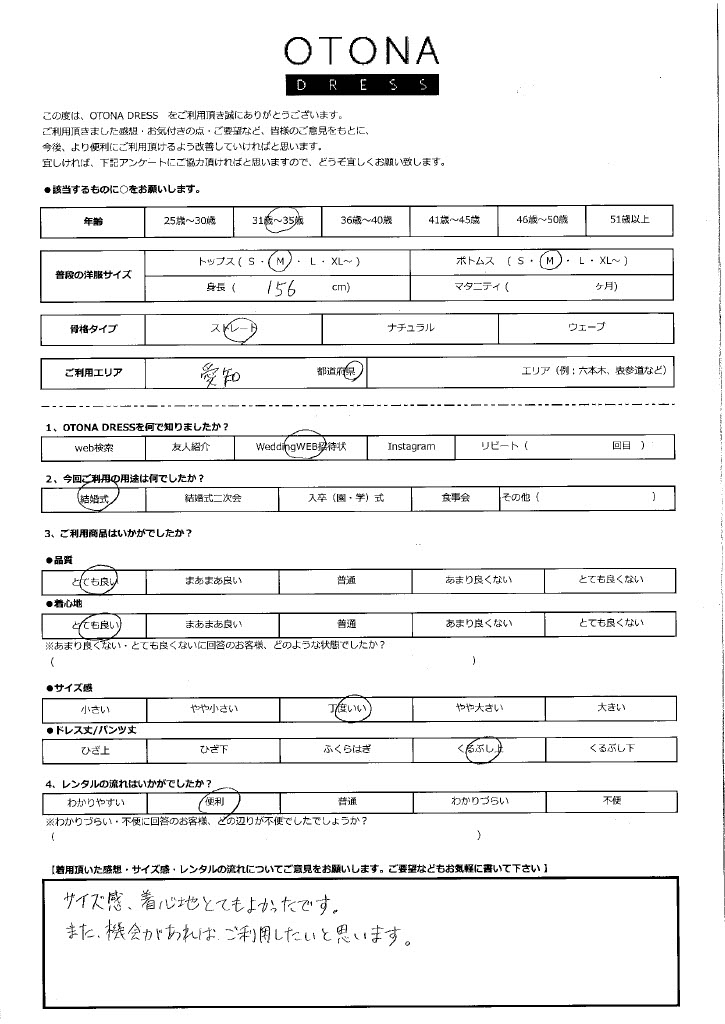 OTONA
DRESS
この度は、OTONA DRESS をご利用頂き誠にありがとうございます。
ご利用頂きました感想・お気付きの点・ご要望など、皆様のご意見をもとに、
今後、より便利にご利用頂けるよう改善していければと思います。
宜しければ、下記アンケートにご協力頂ければと思いますので、どうぞ宜しくお願い致します。
●該当するものに○をお願いします。
年齢 25歳～30歳 31歳～35歳 36歳～40歳 41歳～45歳 46歳～50歳 51歳以上
普段の洋服サイズ トップス ( S ・ M ・ L ・ XL～ ) ボトムス ( S ・ M ・ L ・ XL～ )
身長 ( 156 cm) マタニティ ( ヶ月)
骨格タイプ ストレート ナチュラル ウェーブ
ご利用エリア 愛知 都道府県 エリア（例：六本木、表参道など）
1、OTONA DRESSを何で知りましたか？
web検索 友人紹介 WeddingWEB招待状 Instagram リピート ( 回目 )
2、今回ご利用の用途は何でしたか？
結婚式 結婚式二次会 入卒（園・学）式 食事会 その他 ( )
3、ご利用商品はいかがでしたか？
●品質
とても良い まあまあ良い 普通 あまり良くない とても良くない
●着心地
とても良い まあまあ良い 普通 あまり良くない とても良くない
※あまり良くない・とても良くないに回答のお客様、どのような状態でしたか？
( )
●サイズ感
小さい やや小さい 丁度いい やや大きい 大きい
●ドレス丈/パンツ丈
ひざ上 ひざ下 ふくらはぎ くるぶし上 くるぶし下
4、レンタルの流れはいかがでしたか？
わかりやすい 便利 普通 わかりづらい 不便
※わかりづらい・不便に回答のお客様、どの辺りが不便でしたでしょうか？
( )
【着用頂いた感想・サイズ感・レンタルの流れについてご意見をお願いします。ご要望などもお気軽に書いて下さい】
サイズ感、着心地とてもよかったです。
また、機会があれば、ご利用したいと思います。